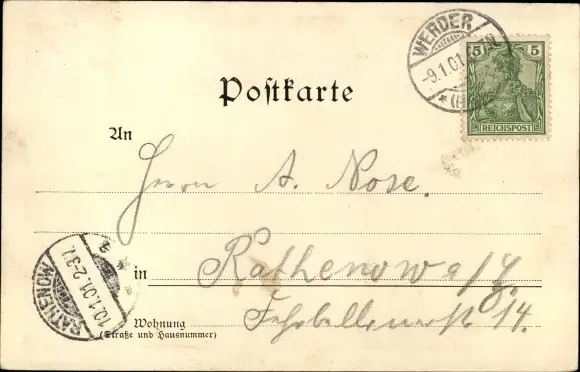 WERDER
-9.1.01.
5 5
REICHSPOST
Postkarte
An
Herrn A. Nose.
in Rathenow a/H.
Wohnung Fehrbellinerstr. 14.
(Straße und Hausnummer)
RATHENOW
10.1.01. 2-3V.